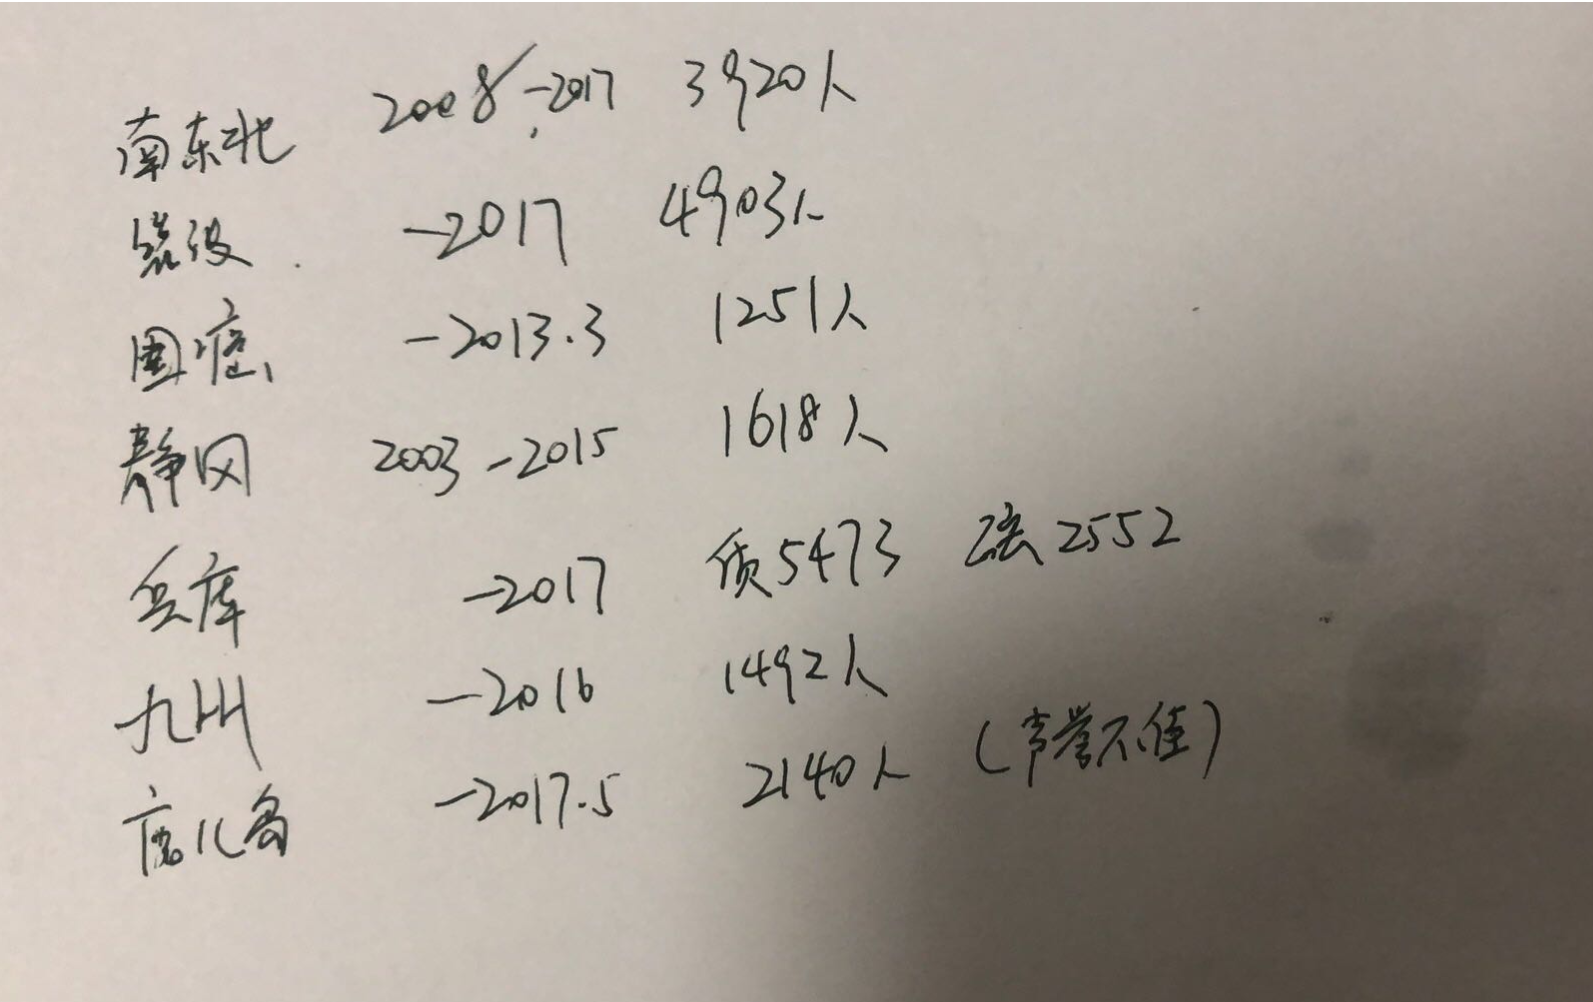 南东北 2008-2017 3920人
筑波 -2017 4903人
国癌 -2013.3 1251人
静冈 2003-2015 1618人
兵库 -2017 质5473 碳2552
九州 -2016 1492人
鹿儿岛 -2017.5 2140人 (声誉不佳)